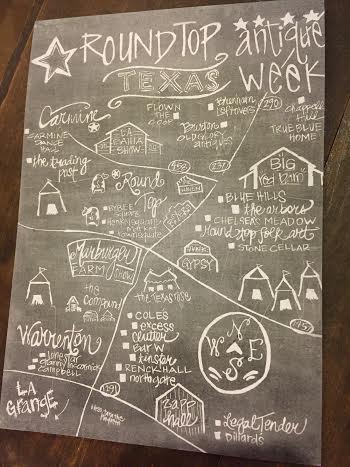 ROUNDTOP
antique
TEXAS
week
Carmine
FLOWN
THE
COOP
Brenham
leftovers
290
Chappell
Hill
TRUE BLUE
HOME
CARMINE
DANCE
HALL
the trading
post
LA
BAHIA
SHOW
Burton
OLDE GLORY
antiques
237
Round
Top
BYBEE
SQUARE
BIG
red barn
BLUE HILLS
the arbors
CHELSEAS MEADOW
Round top folk art
STONE CELLAR
Marburger
FARM
JUNK
GYPSY
the compound
the texas rose
COLES
excess
clutter
bar W
tin star
RENCK HALL
north gate
N
W
E
S
Warrenton
lone star
campbell
LA
GRANGE
zapp
hall
Legal Tender
Dillards